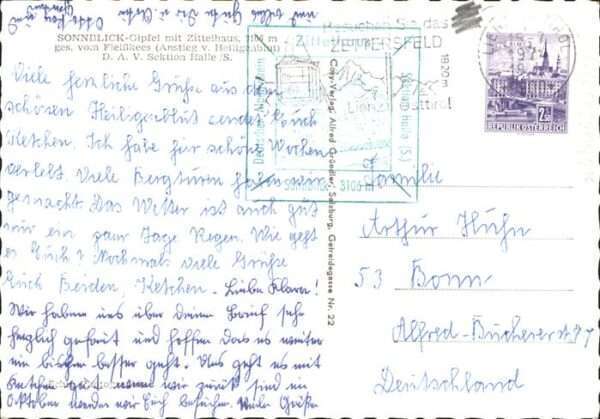 SONNBLICK-Gipfel mit Zittelhaus, 3106 m
ges. vom Fleißkees (Anstieg v. Heiligenblut)
D. A. V. Sektion Halle /S.
Viele herzliche Grüße aus dem
schönen Heiligenblut sendet Euch
Ketchen. Ich habe für schöne Wochen
verlebt. Viele Bergturen haben wir
gemacht Das Wetter ist auch gut
nur ein paar Tage Regen. Wie geht
es Euch? Nochmals viele Grüße
Euch Beiden, Ketchen. Liebe Klara!
Wir haben uns über deinen Brief sehr
herzlich gefreut und hoffen das es weiter
ein bischen besser geht. Uns geht es mit
Ketchen gut wenn wir zurück sind im
Oktober werden wir Euch besuchen. Viele Grüße
und alles Gute
Besuchen Sie das
ZETTERSFELD
1920m
Lienz Osttirol
Deutscher Alpenverein
Sektion Halle (S.)
3106 m
Cosy-Verlag, Alfred Gründler, Salzburg, Getreidegasse Nr. 22
2.20
REPUBLIK ÖSTERREICH
Familie
Arthur Huhn
53 Bonn
Alfred-Bucherer str 97
Deutschland